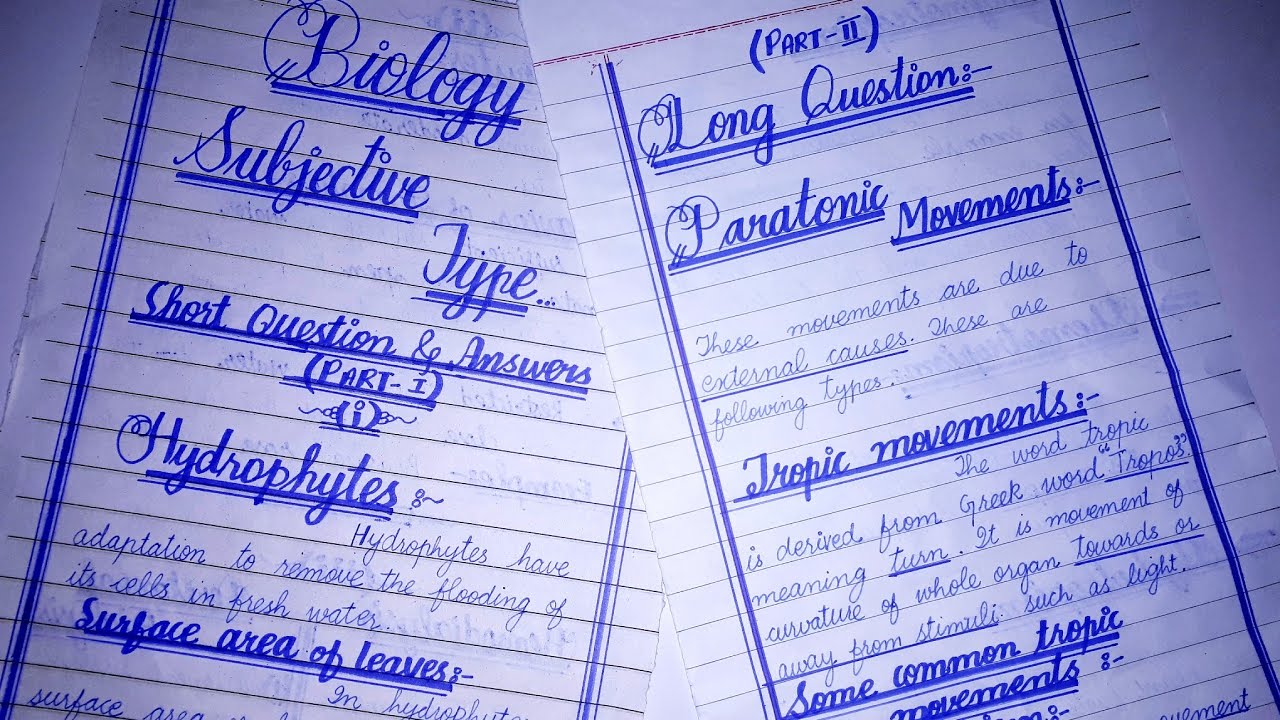 Biology
Subjective
Type...
Short Question & Answers
(PART-I)
(i)
Hydrophytes:~
Hydrophytes have
adaptation to remove the flooding of
its cells in fresh water.
Surface area of leaves:-
In hydrophytes
surface area
(PART-II)
Long Question:-
Paratonic Movements:-
These movements are due to
external causes. These are
following types.
Tropic movements:-
The word tropic
is derived from Greek word "Tropos"
meaning turn. It is movement of
curvature of whole organ towards or
away from stimuli such as light.
Some common tropic
movements :-
movement